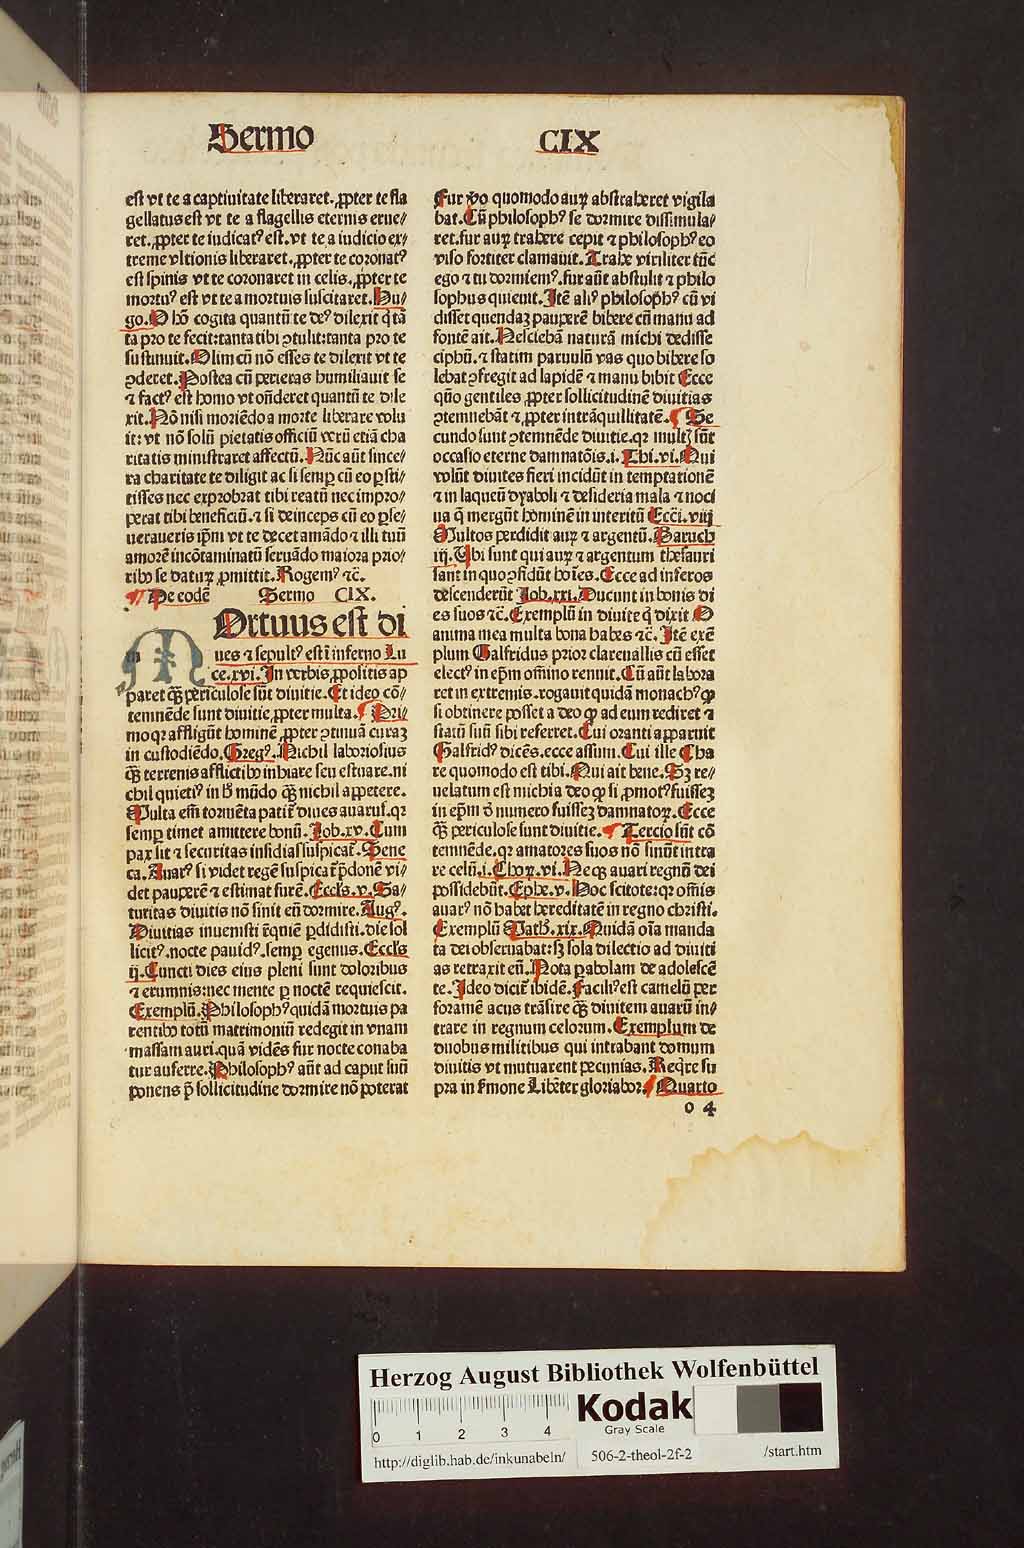 Sermo CIX
est vt te a captiuitate liberaret. ꝓpter te fla
gellatus est vt te a flagellis eternis erue⸗
ret. ꝓpter te iudicatꝰ est. vt te a iudicio ex⸗
treme vltionis liberaret. ꝓpter te coronatꝰ
est spinis vt te coronaret in celis. ꝓpter te
mortuꝰ est vt te a mortuis suscitaret. Hu⸗
go. O hō cogita quantū te deꝰ dilexit q̄ tā
ta pro te fecit: tanta tibi ꝯtulit: tanta pro te
sustinuit. Olim cū nō esses te dilexit vt te
ꝯderet. Postea cū perieras humiliauit se
⁊ factꝰ est homo vt oñderet quantū te dile
xit. Nō nisi moriēdo a morte liberare volu
it: vt nō solū pietatis officiū verū etiā cha
ritatis ministraret affectū. Nūc aūt since⸗
ra charitate te diligit ac si semꝑ cū eo ꝑsti⸗
tisses nec exprobrat tibi reatū nec impro⸗
perat tibi beneficiū. ⁊ si deinceps cū eo ꝑse⸗
ueraueris ip̄m vt te decet amādo ⁊ illi tuū
amorē incōtaminatū seruādo maiora prio⸗
ribꝰ se daturꝫ ꝓmittit. Rogemꝰ ⁊c̄.
¶ De eodē Sermo CIX.
MOrtuus est di
ues ⁊ sepultꝰ est ī inferno Lu
ce. xvi. In verbis ꝓpositis ap
paret qꝫ̄ periculose sūt diuitie. Et ideo cō⸗
temnēde sunt diuitie ꝓpter multa. ¶ Pri⸗
mo qꝛ affligūt hominē ꝓpter ꝯtinuā curaꝫ
in custodiēdo. Gregꝰ. Nichil laboriosius
qꝫ̄ terrenis afflictibꝰ inhiare seu estuare. ni
chil quietiꝰ in hͦ mūdo qꝫ̄ nichil appetere.
Multa em̄ tormēta patit̄ diues auarus. qꝛ
semꝑ timet amittere bonū. Job. xv. Cum
pax sit ⁊ securitas insidias suspicat̄. Sene
ca. Auarꝰ si videt regē suspicat̄ p̄donē vi⸗
det pauperē ⁊ estimat furē. Eccl̄s. v. Sa⸗
turitas diuitis nō sinit eū dormire. Augꝰ.
Diuitias inuenisti ⁊ requiē ꝑdidisti. die sol
licitꝰ. nocte pauidꝰ. semꝑ egenus. Eccl̄s
ij. Cuncti dies eius pleni sunt doloribus
⁊ erumnis: nec mente ꝑ noctē requiescit.
Exemplū. Philosophꝰ quidā mortuis pa
rentibꝰ totū matrimoniū redegit in vnam
massam auri. quā vidēs fur nocte conaba
tur auferre. Philosophꝰ aūt ad caput suū
ponens p̄ sollicitudine dormire nō poterat
Fur v̄o quomodo aurꝫ abstraheret vigila
bat. Cū philosophꝰ se dormire dissimula⸗
ret. fur aurꝫ trahere cepit ⁊ philosophꝰ eo
viso fortiter clamauit. Trahe viriliter tūc
ego ⁊ tu dormiemꝰ. fur aūt abstulit ⁊ philo
sophus quieuit. Itē aliꝰ philosophꝰ cū vi
disset quendaꝫ pauperē bibere cū manu ad
fontē ait. Nesciebā naturā michi dedisse
ciphū. ⁊ statim paruulū vas quo bibere so
lebat ꝯfregit ad lapidē ⁊ manu bibit Ecce
quō gentiles ꝓpter sollicitudinē diuitias
ꝯtemnebāt ⁊ ꝓpter intrāquillitatē. ¶ Se
cundo sunt ꝯtemnēde diuitie. qꝛ multꝭ sūt
occasio eterne damnatōis. i. Thi. vi. Qui
volūt diuites fieri incidūt in temptationē
⁊ in laqueū dyaboli ⁊ desideria mala ⁊ noci
ua q̄ mergūt hominē in interitū Ecc̄i. viij
Multos perdidit aurꝫ ⁊ argentū. Baruch
iij. Ubi sunt qui aurꝫ ⁊ argentum thesauri
sant in quo ꝯfidūt hoīes. Ecce ad inferos
descenderūt Job. xxi. Ducunt in bonis di
es suos ⁊c̄. Exemplū in diuite q̄ dixit O
anima mea multa bona habes ⁊c̄. Itē exē
plum Galfridus prior clareuallis cū esset
electꝰ in ep̄m om̄ino rennit. Cū aūt labora
ret in extremis. rogauit quidā monachꝰ ꝙ
si obtinere posset a deo ꝙ ad eum rediret ⁊
statū suū sibi referret. Cui oranti apparuit
Galfridꝰ dicēs. ecce assum. Cui ille Cha
re quomodo est tibi. Qui ait bene. Sꝫ re⸗
uelatum est michi a deo ꝙ si ꝓmotꝰ fuisseꝫ
in ep̄m d̄ numero fuisseꝫ damnatoꝝ. Ecce
qꝫ̄ periculose sunt diuitie. ¶ Tercio sūt cō
temnēde. qꝛ amatores suos nō sinūt intra
re celū. i. Choꝝ. vi. Neqꝫ auari regnū dei
possidebūt. Ephe. v. Hoc scitote: qꝛ om̄is
auarꝰ nō habet hereditatē in regno christi.
Exemplū Math. xix. Quidā oīa manda
ta dei obseruabat: sꝫ sola dilectio ad diuiti
as retraxit eū. Nota ꝑabolam de adolescē
te. Ideo dicit̄ ibidē. Faciliꝰ est camelū per
foramē acus trāsire qꝫ̄ diuitem auarū in⸗
trare in regnum celorum. Exemplum de
duobus militibus qui intrabant domum
diuitis vt mutuarent pecunias. Req̄re su
pra in s̄mone Libēter gloriabor. ¶ Quarto
o 4
Herzog August Bibliothek Wolfenbüttel
0 1 2 3 4
Kodak
Gray Scale
http://diglib.hab.de/inkunabeln/ 506-2-theol-2f-2 /start.htm